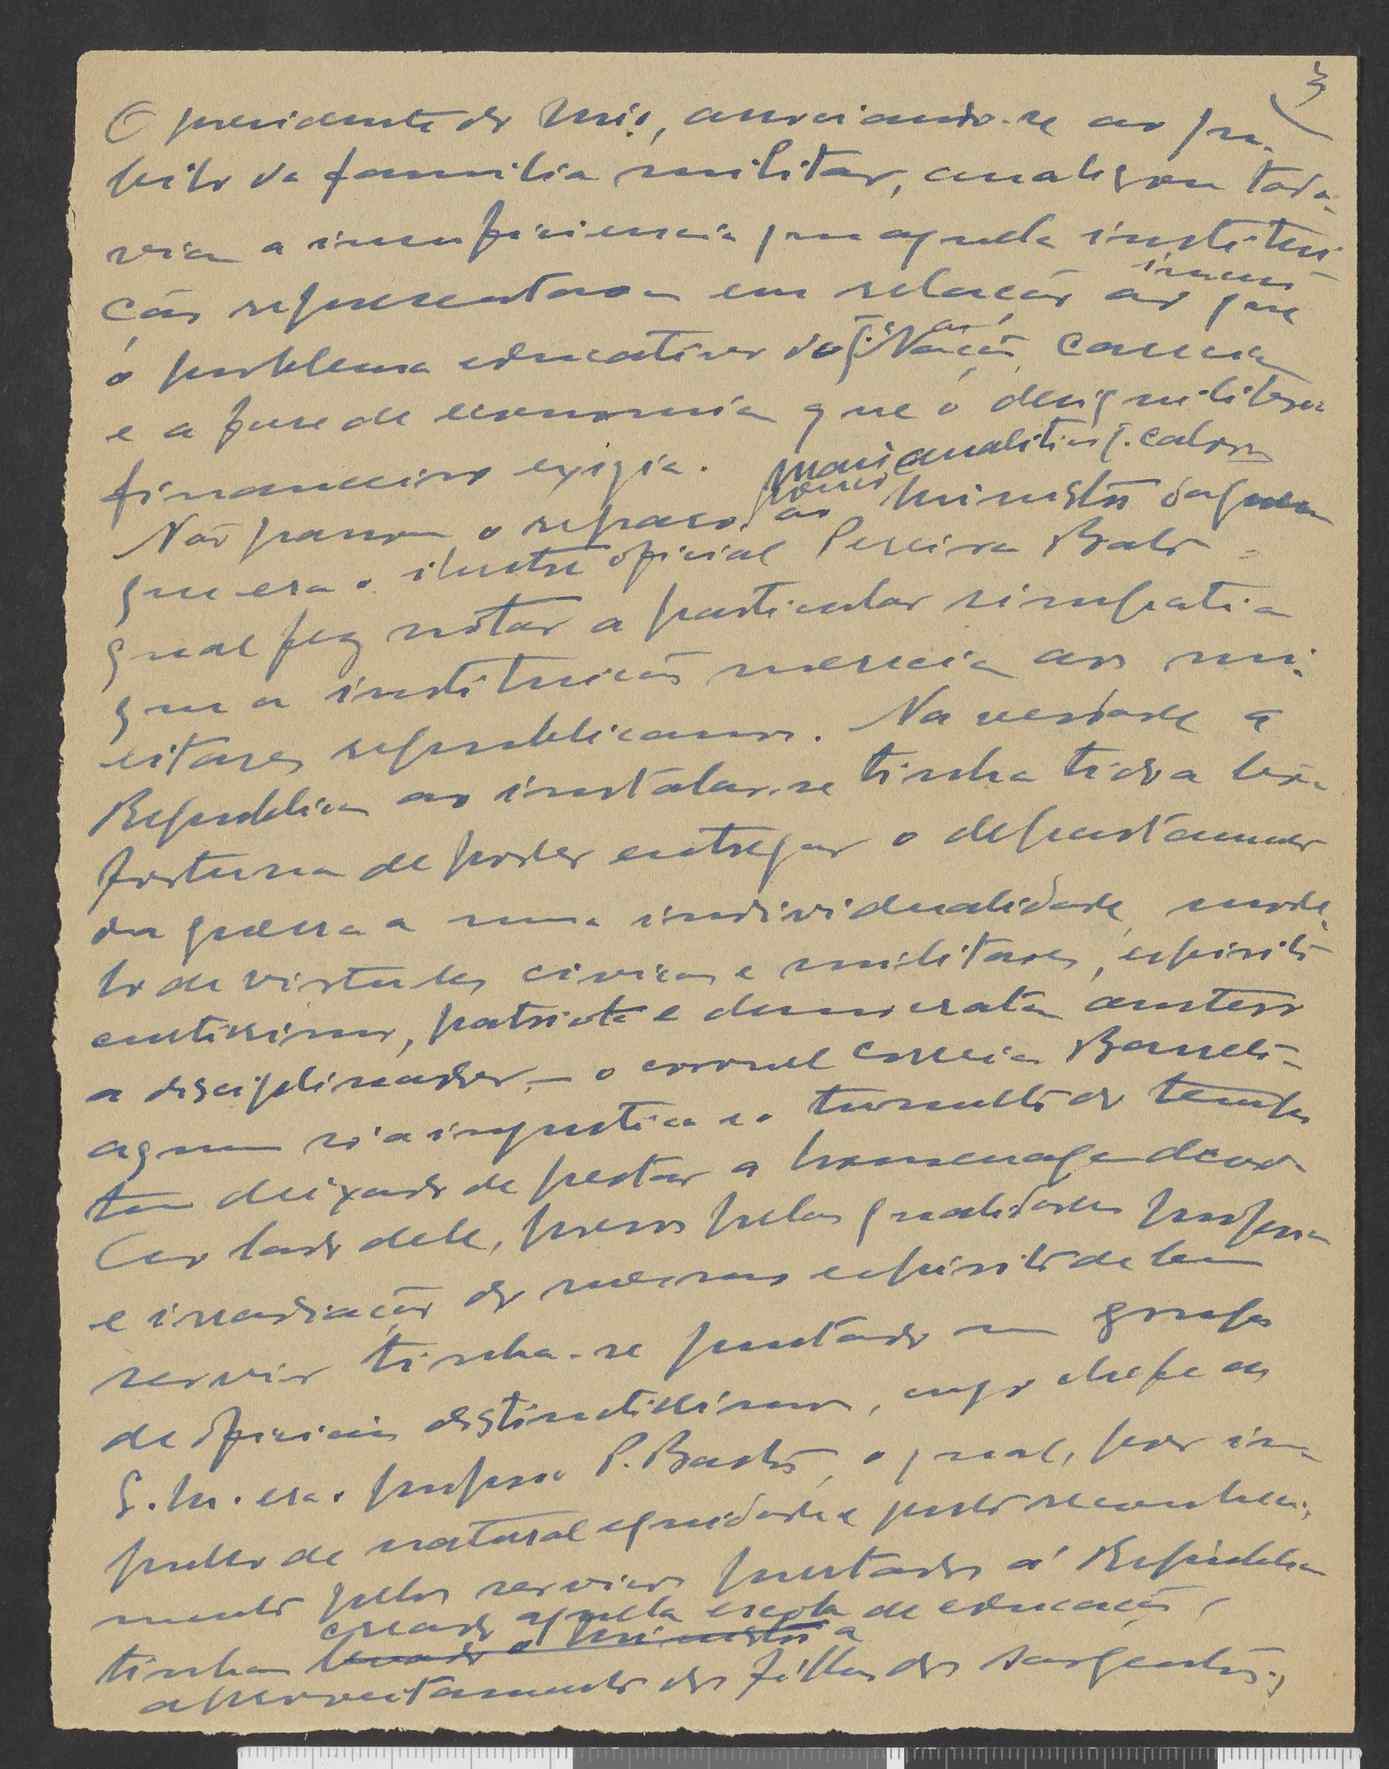 3
O presidente do Min.º, associando-se ao ju-
bilo da familia militar, analizou toda-
via a insuficiencia que aquela institui-
ção representava em relação ao imenso que
o problema educativo da Nação carecia
e a fase de economia que o desiquilibrio
financeiro exigia.
Não passou o reparo, mais analitico q. caloroso ao ministro da guerra
que era o ilustre oficial Pereira Bastos
qual fez notar a particular simpatia
que a instituição merecia aos mi-
litares republicanos. Na verdade a
Republica ao instalar-se tinha tido a boa
fortuna de poder entregar o departamento
da guerra a uma individualidade, mode-
lo de virtudes civicas e militares, espirito
cultissimo, patriota e democrata austero
e disciplinador, — o coronel Correia Barreto —
a quem só a injustiça e o tumulto do tempo
tem deixado de prestar a homenagem devida
Ao lado dele, presos pelas qualidades profess.
e irradiação do mesmo espirito de bem
servir tinha-se juntado um grupo
de oficiais distintissimos, cujo chefe do
E. M. era o proprio P. Bastos, o qual, por im-
pulso de natural equidade e justo reconheci-
mento pelos serviços prestados á Republica
tinha creado aquela escola de educação e
aproveitamento dos filhos dos sargentos;